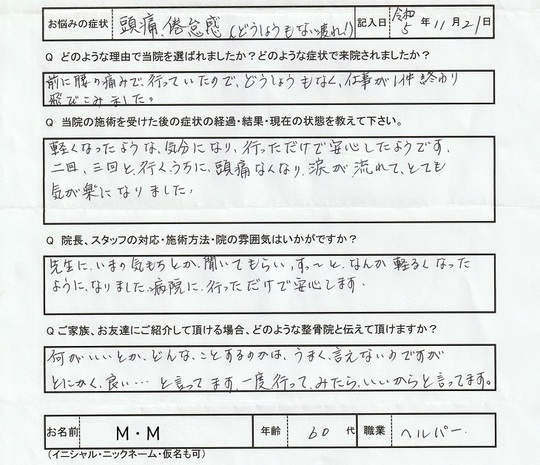 お悩みの症状 頭痛、倦怠感(どうしようもない疲れ!) 記入日 令和5年11月21日
Q どのような理由で当院を選ばれましたか?どのような症状で来院されましたか?
前に腰の痛みで、行っていたので、どうしようもなく、仕事が1件終わり
飛びこみました。
Q 当院の施術を受けた後の症状の経過・結果・現在の状態を教えて下さい。
軽くなったような、気分になり、行っただけで安心したようです、
二回、三回と、行くうちに、頭痛なくなり、涙が流れて、とても
気が楽になりました、
Q 院長、スタッフの対応・施術方法・院の雰囲気はいかがですか?
先生に、いまの気もちとか、聞いてもらい、すぅ〜と、なんか軽るくなった
ように、なりました、病院に、行っただけで安心します。
Q ご家族、お友達にご紹介して頂ける場合、どのような整骨院と伝えて頂けますか?
何がいいとか、どんな、ことするのかは、うまく、言えないのですが
とにかく、良い… と言ってます、一度行って、みたら、いいからと言ってます。
お名前 M・M 年齢 60代 職業 ヘルパー.
(イニシャル・ニックネーム・仮名も可)